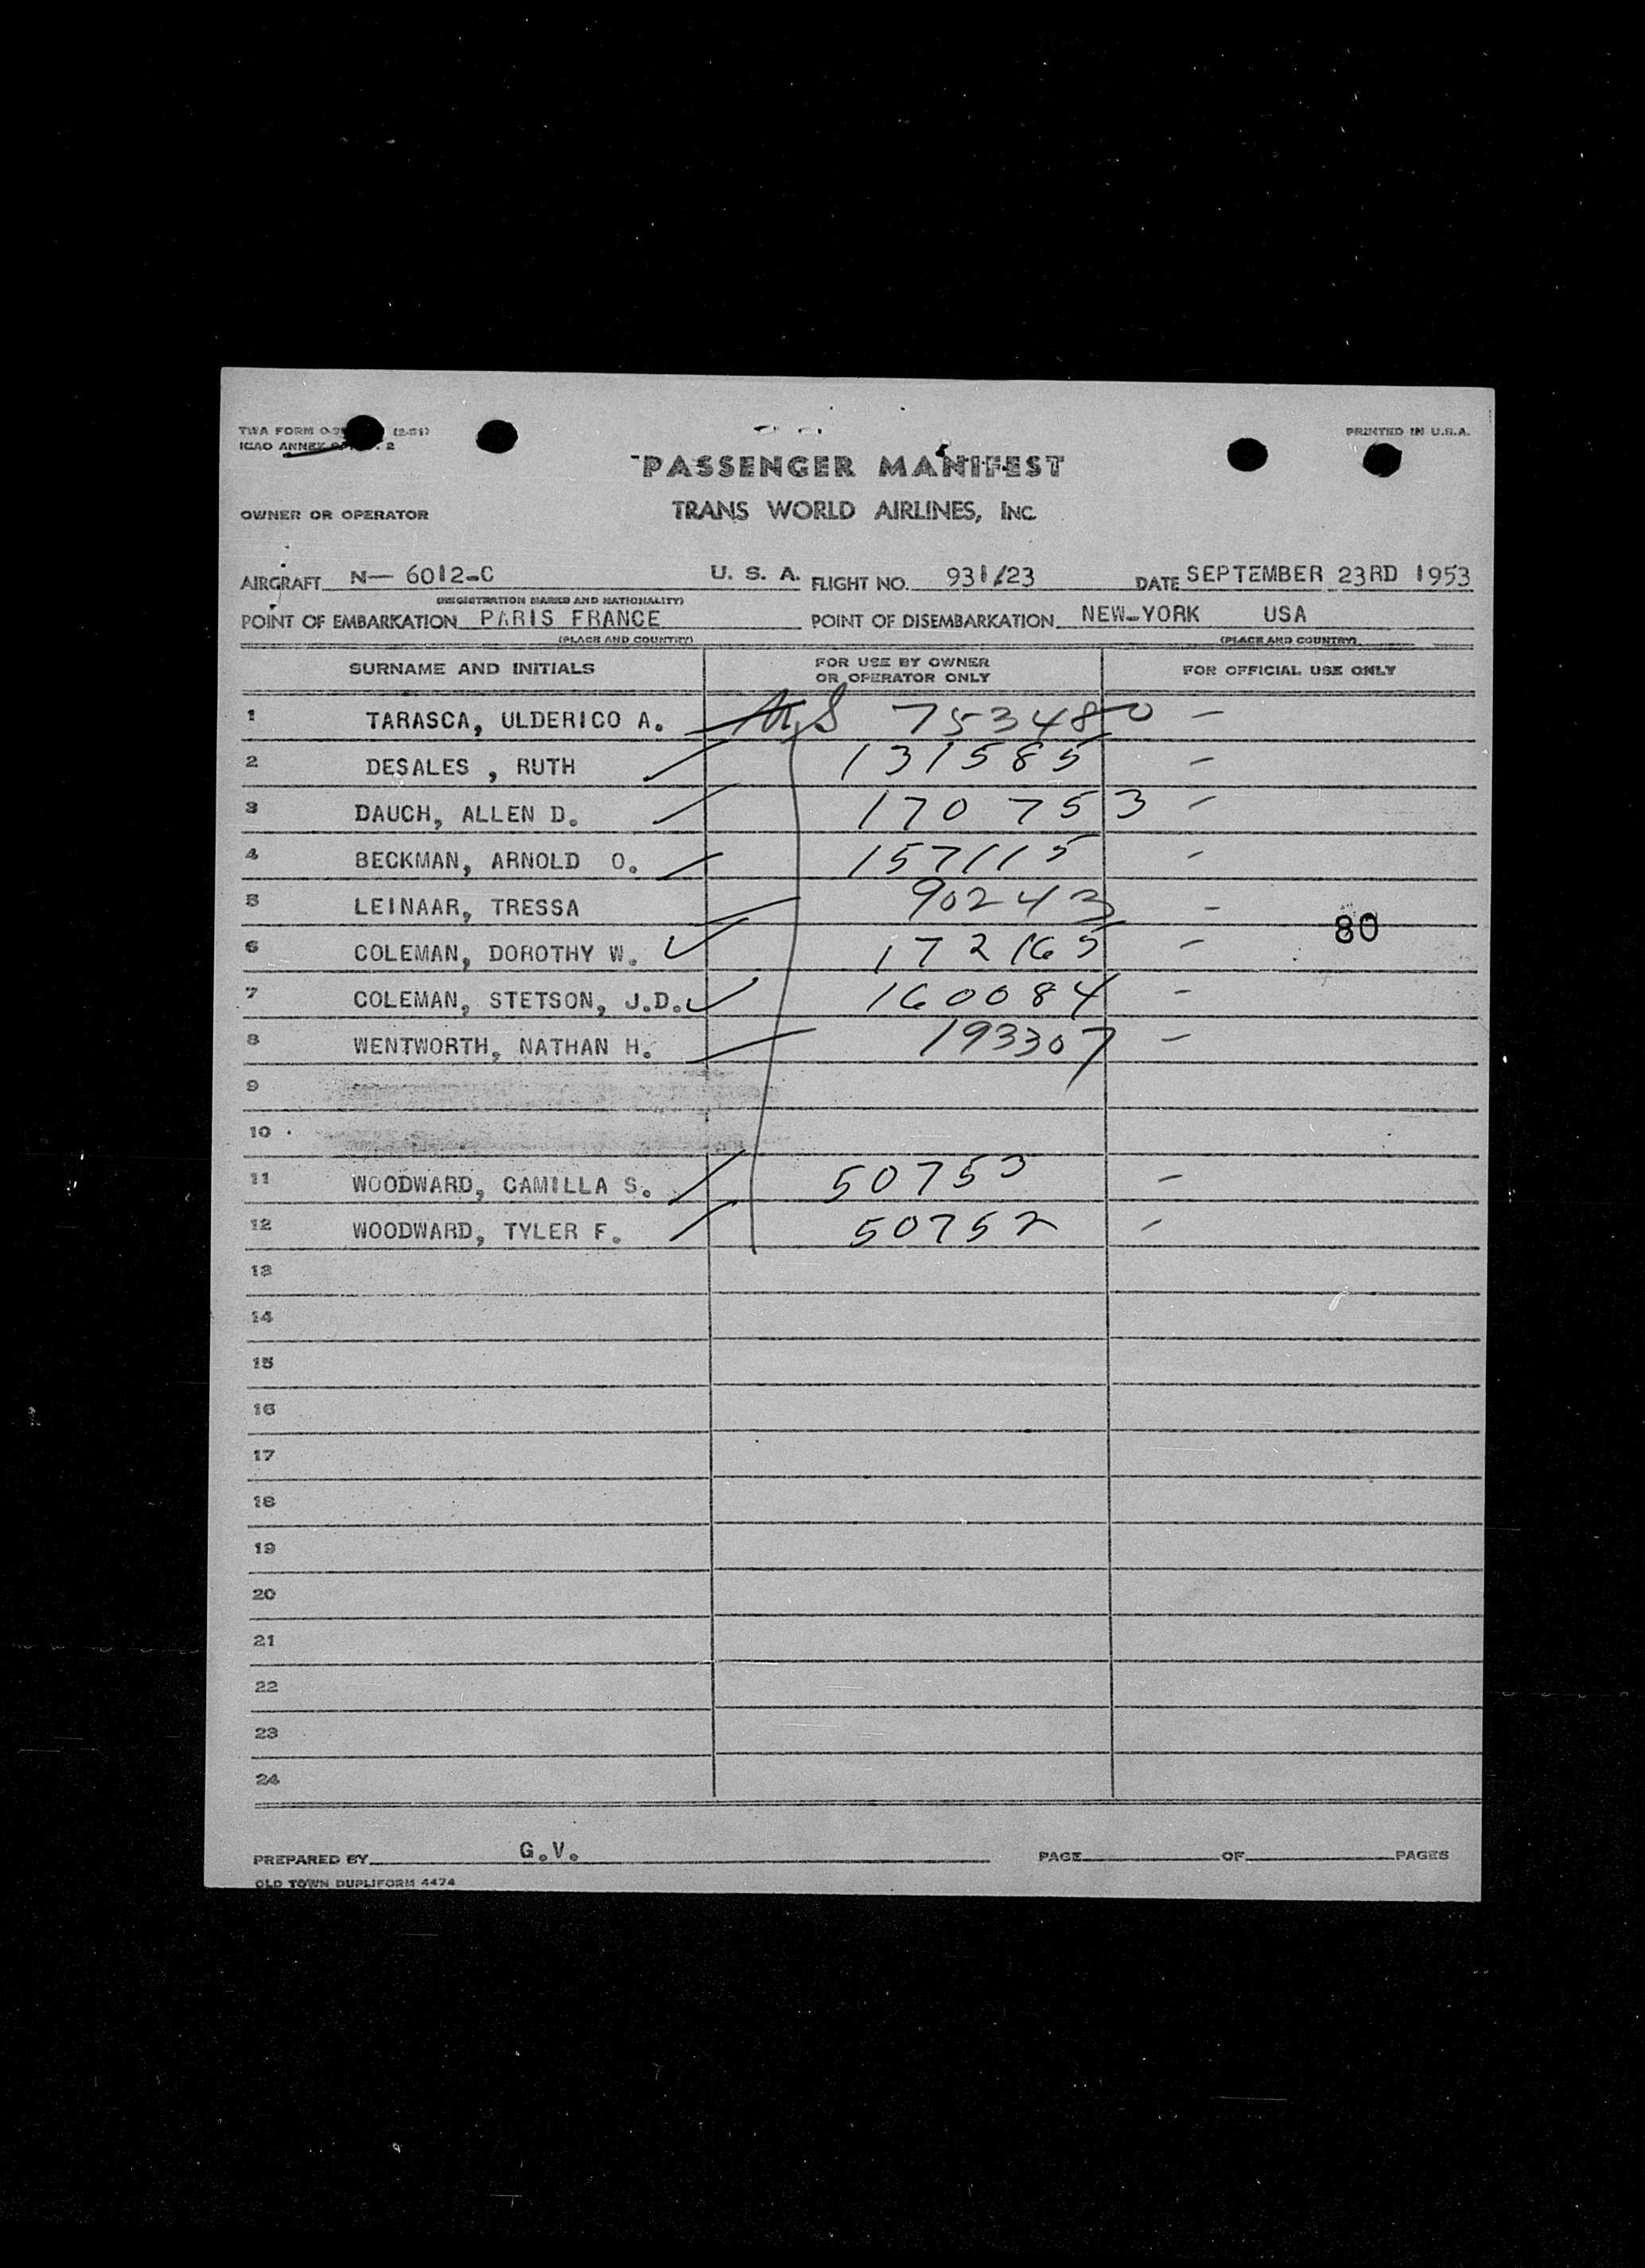 TWA FORM (2-51)
ICAO ANNEX 2
PRINTED IN U.S.A.
PASSENGER MANIFEST
OWNER OR OPERATOR TRANS WORLD AIRLINES, INC.
AIRCRAFT N— 6012-C U. S. A. FLIGHT NO. 931/23 DATE SEPTEMBER 23RD 1953
(REGISTRATION MARKS AND NATIONALITY)
POINT OF EMBARKATION PARIS FRANCE POINT OF DISEMBARKATION NEW-YORK USA
(PLACE AND COUNTRY) (PLACE AND COUNTRY)
SURNAME AND INITIALS FOR USE BY OWNER OR OPERATOR ONLY FOR OFFICIAL USE ONLY
1 TARASCA, ULDERICO A. 753480 –
2 DESALES , RUTH 131585 –
3 DAUCH, ALLEN D. 170 753 –
4 BECKMAN, ARNOLD O. 157115 –
5 LEINAAR, TRESSA 90243 –
80
6 COLEMAN, DOROTHY W. 172165 –
7 COLEMAN, STETSON, J.D. 160084 –
8 WENTWORTH, NATHAN H. 193307 –
9
10
11 WOODWARD, CAMILLA S. 50753 –
12 WOODWARD, TYLER F. 50752 –
13
14
15
16
17
18
19
20
21
22
23
24
PREPARED BY G.V. PAGE OF PAGES
OLD TOWN DUPLIFORM 4474